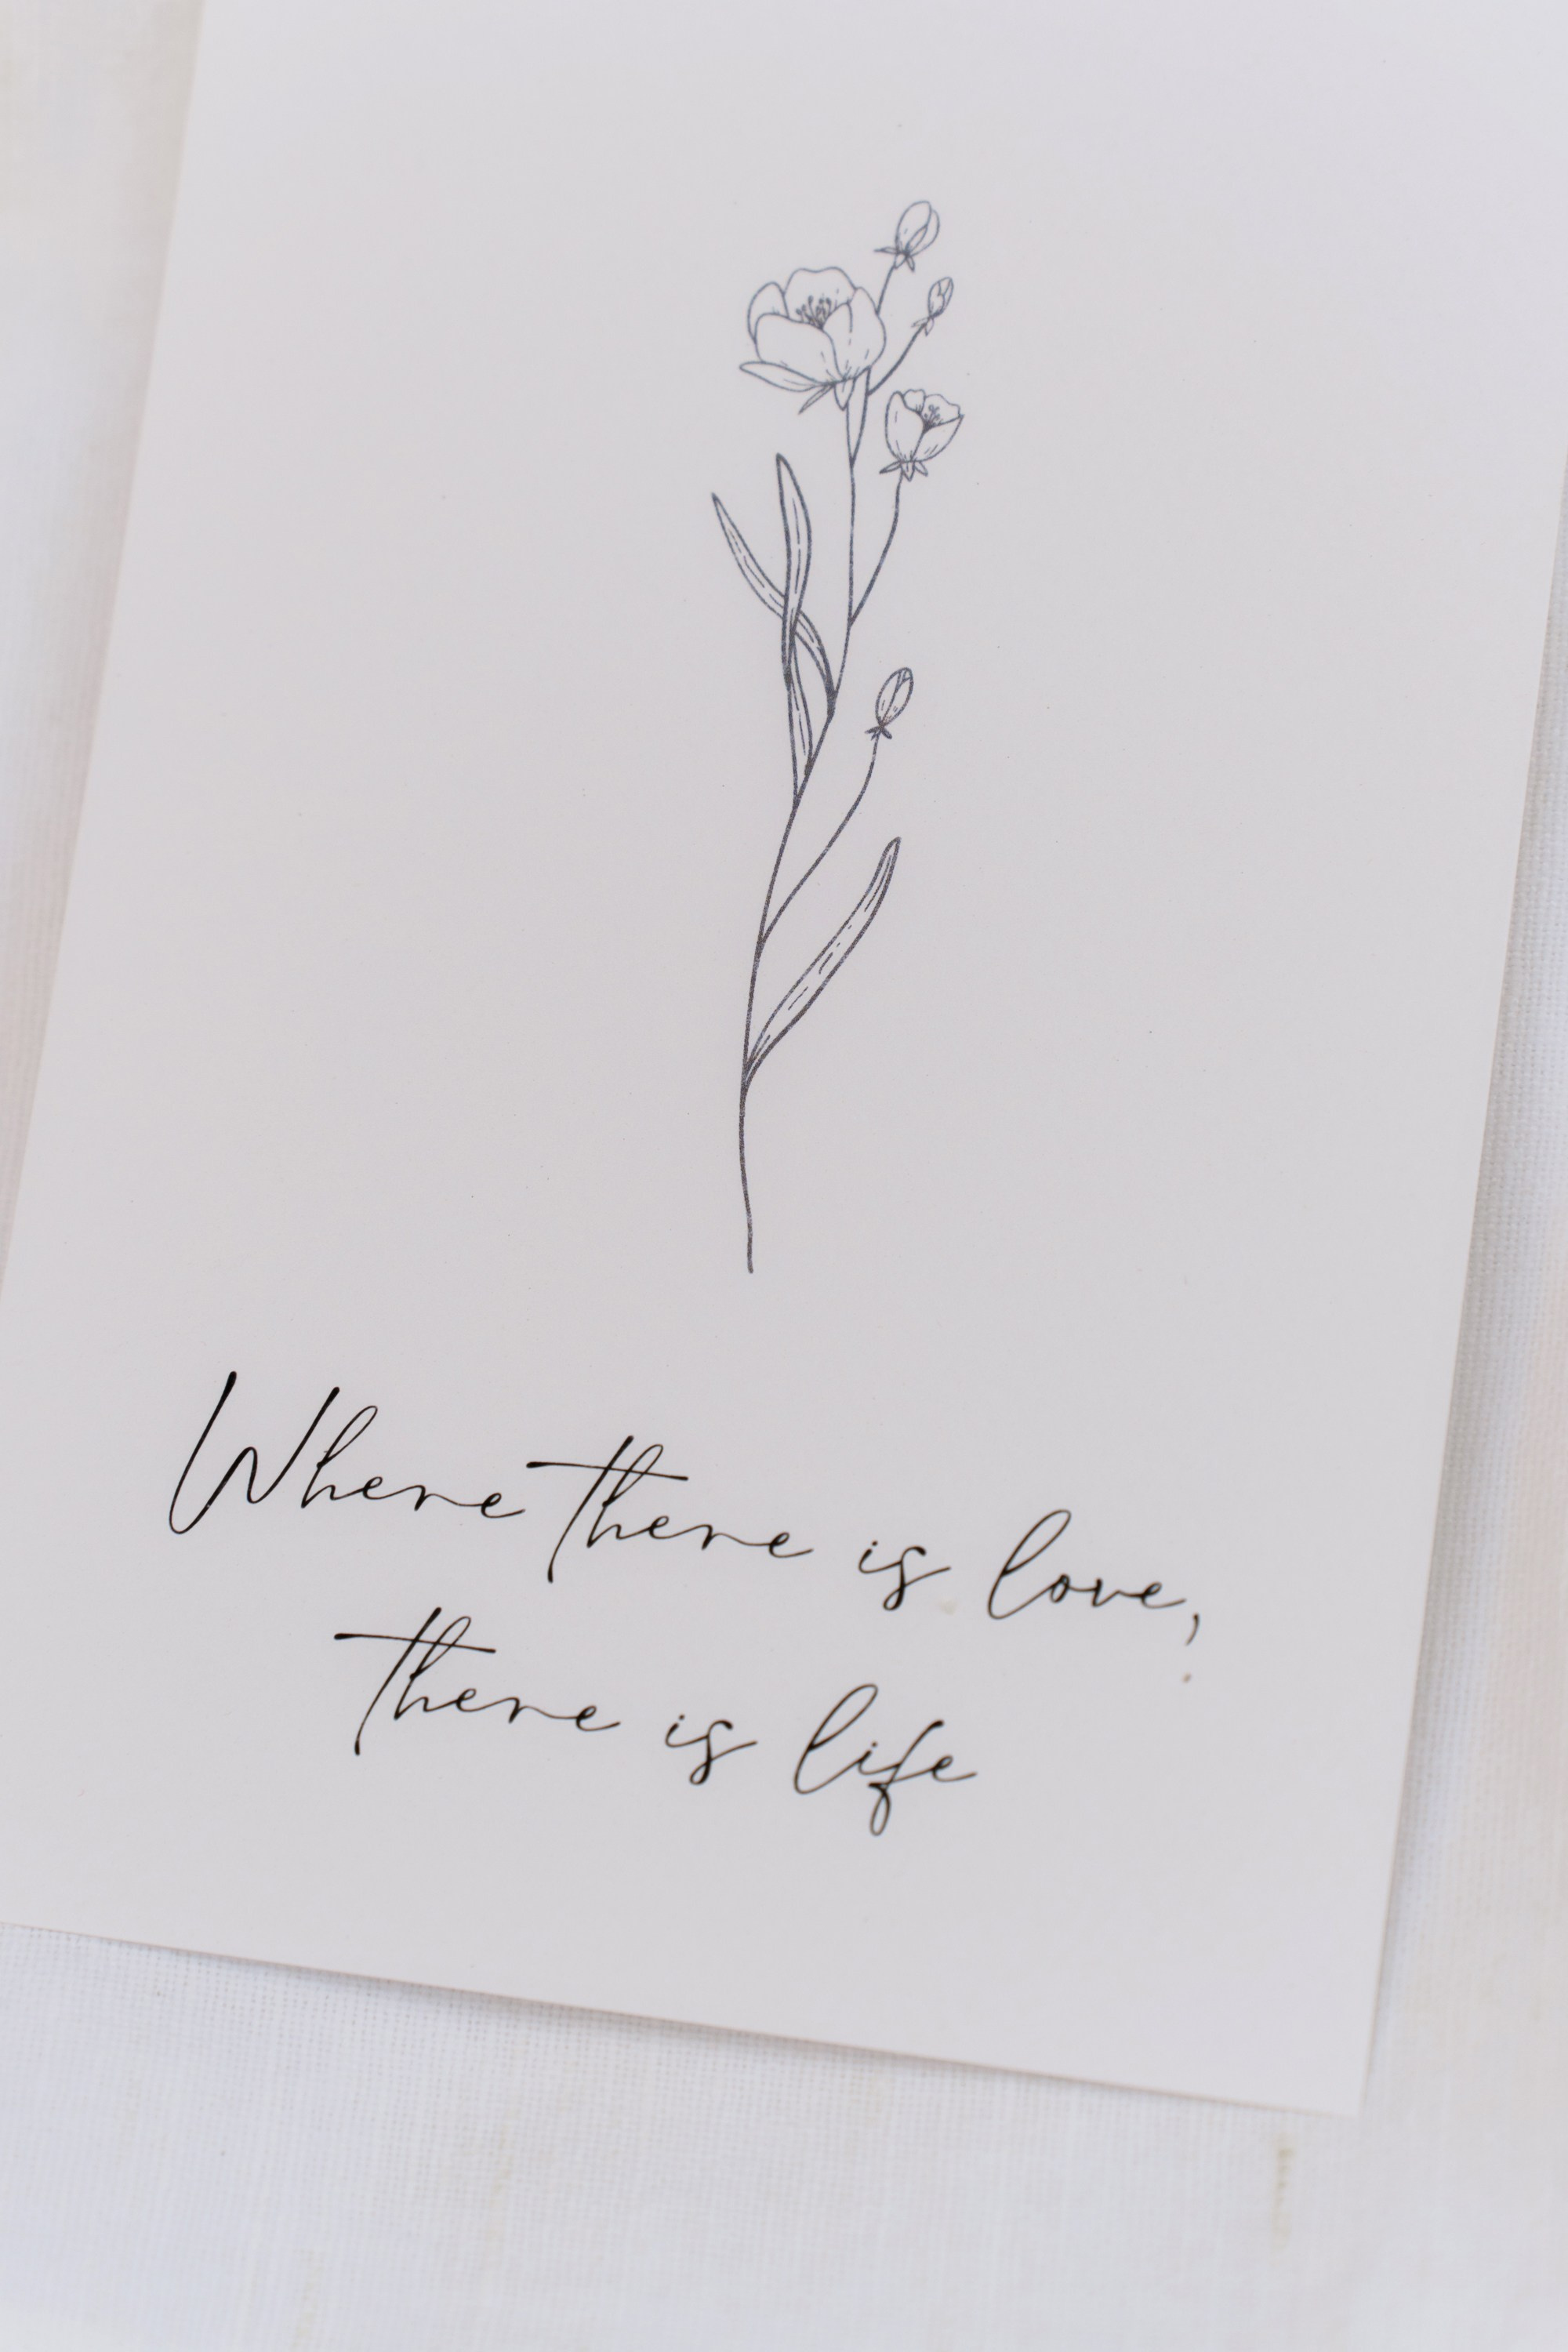 Where there is love,
there is life